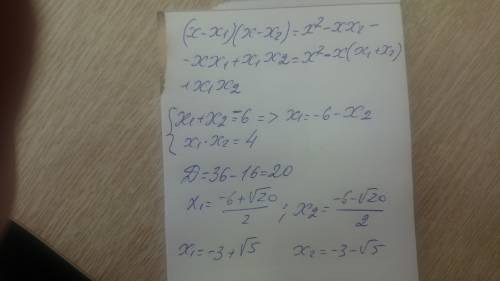 (x-x₁)(x-x₂)=x²-xx₂-
-xx₁+x₁x₂=x²-x(x₁+x₂)
+x₁x₂
{x₁+x₂=-6 => x₁=-6-x₂
x₁·x₂=4
D=36-16=20
x₁=(-6+√20)/2; x₂=(-6-√20)/2
x₁=-3+√5 x₂=-3-√5